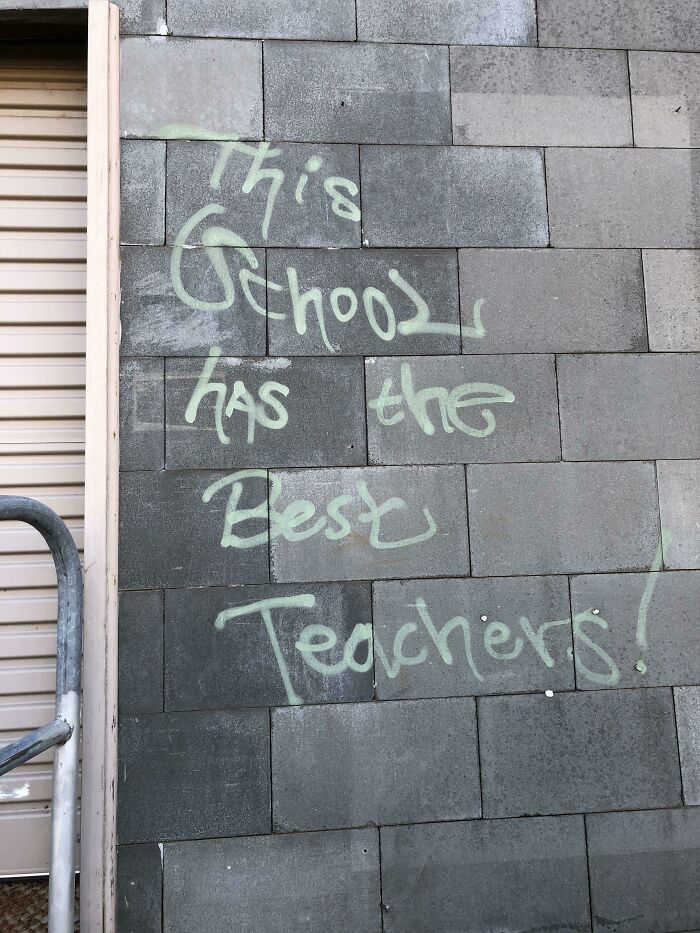 This
School
has the
Best
Teachers!